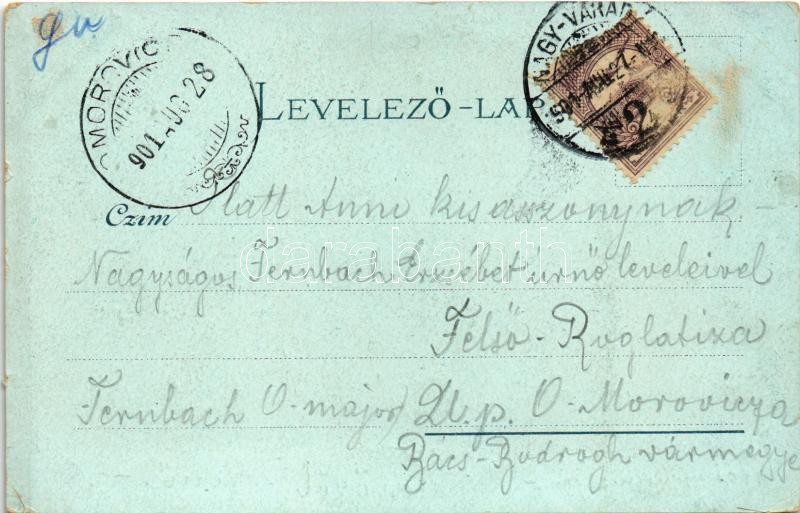 OMOROVIC
901 AUG 28
NAGY-VÁRAD
LEVELEZŐ-LAP
Czím Platt Anni kisasszonynak -
Nagyságos Fernbach Erzsébet urnő leveleivel
Felső-Roglatiza
Fernbach O-major) U.p. O-Morovicza
Bács-Bodrogh vármegye
darabanth